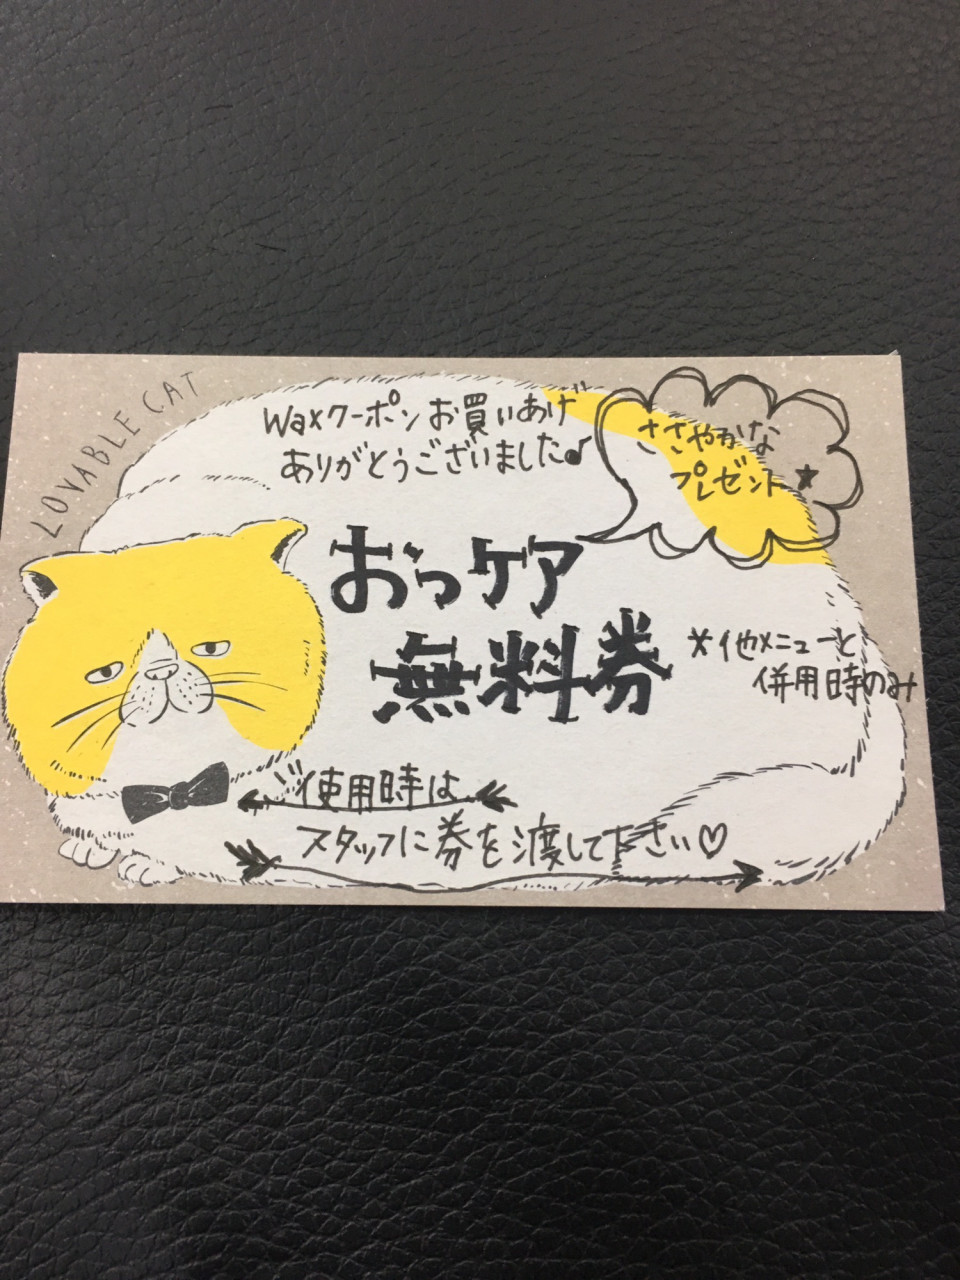 LOVABLE CAT
Waxクーポンお買いあげ
ありがとうございました♪
ささやかな
プレゼント★
おっケア
無料券
*他メニューと
併用時のみ
使用時は
スタッフに券を渡して下さい♡